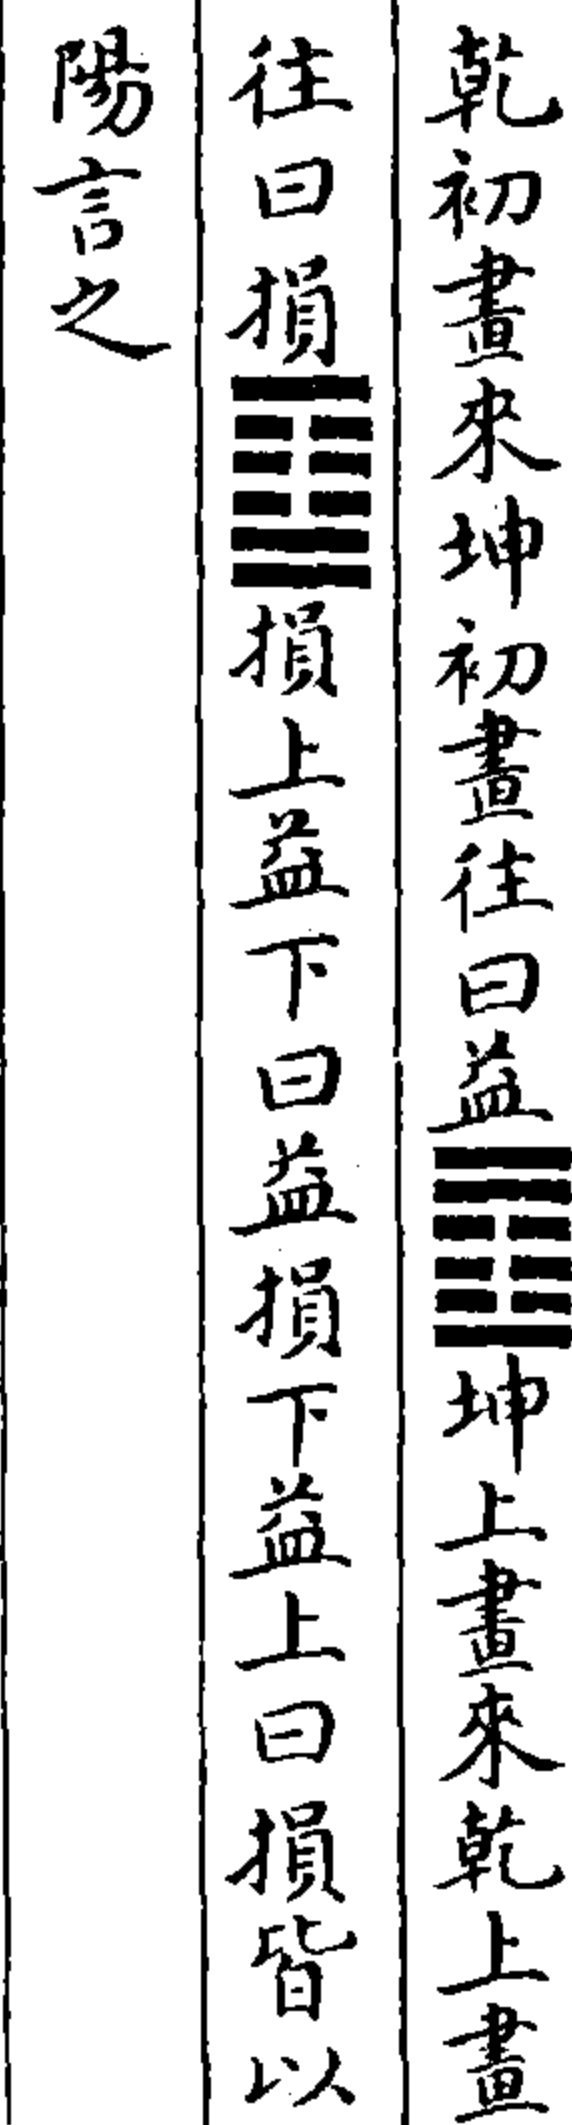 乾初畫來坤初畫往曰益䷩坤上畫來乾上畫
往曰損䷨損上益下曰益損下益上曰損皆以
陽言之